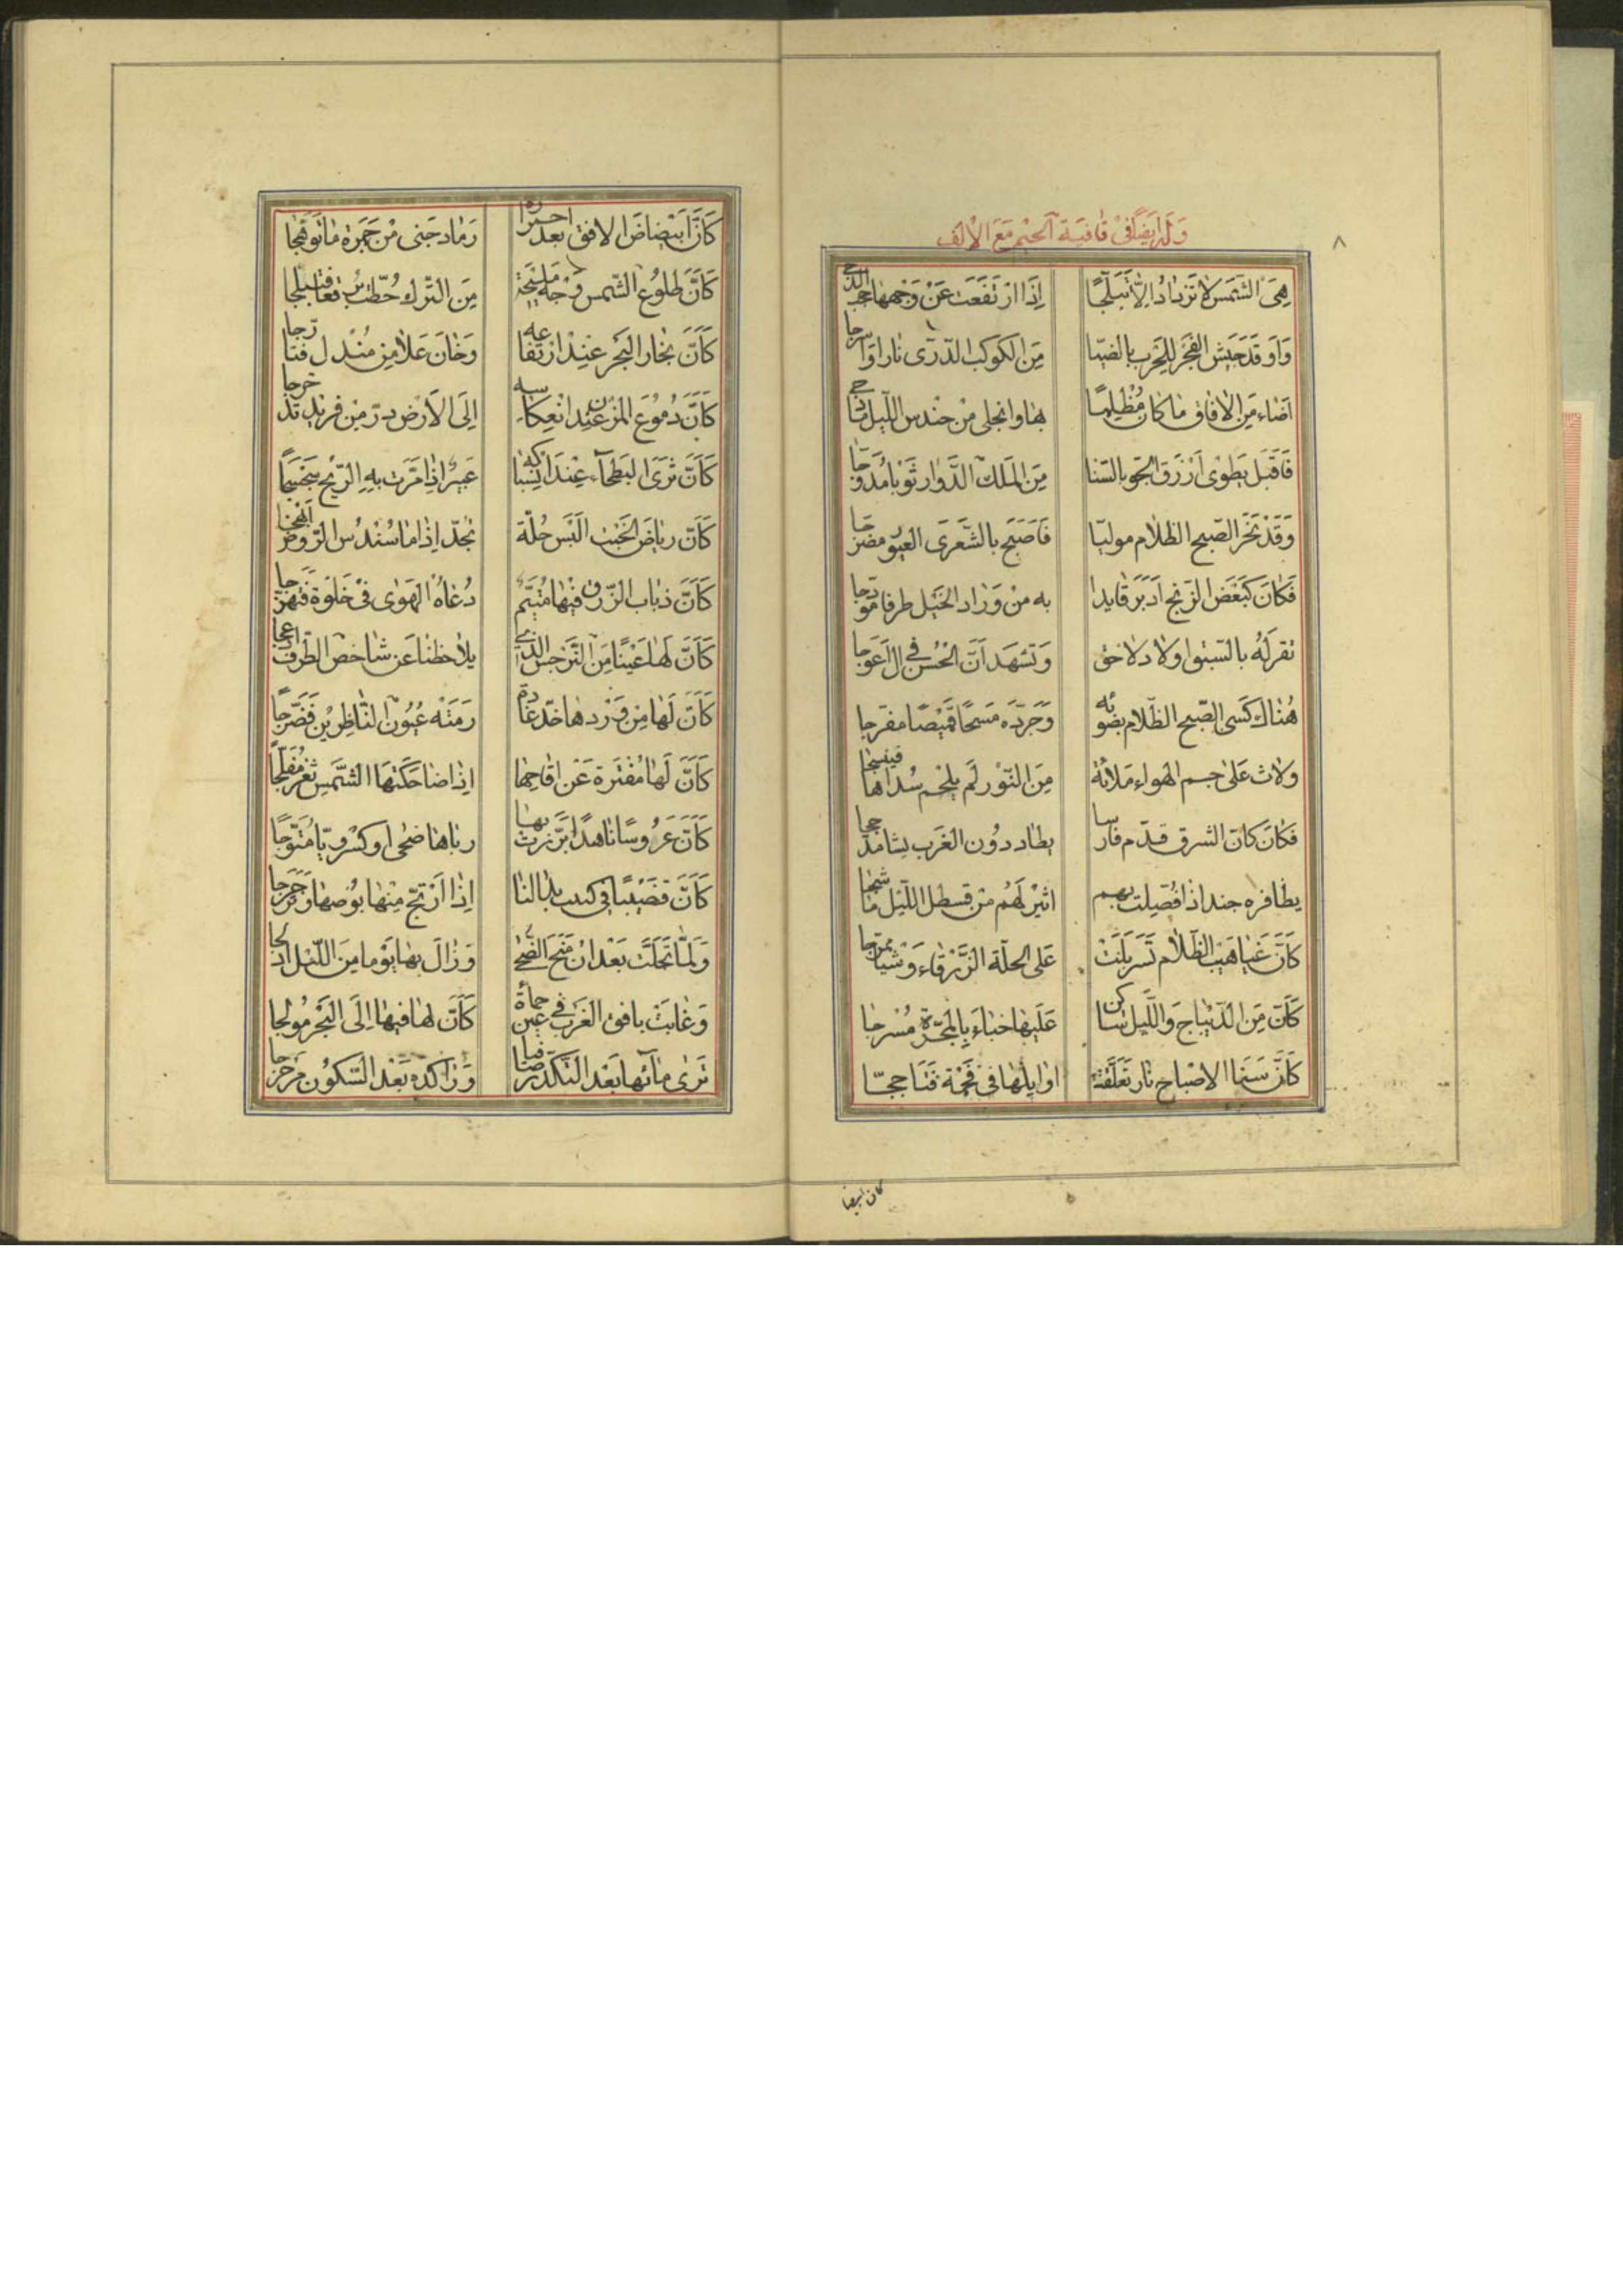 وله ايضا في قافية الجيم مع الالف
۸
هِيَ الشَّمسُ لا تَزدادُ اِلّا تَبَلُّجًا اِذَا ارتَفَعَت عَنْ وَجهِها الدجى
وَاَوقَدَ جَيش الفَجرِ للحَرب بالضيا مِنَ الكوكب الدّرّى نارا واسرجا
اَضاء مِنَ الافاق ما كان مُظلِمًا بها وانجلى من حندس الليل ما دجى
فَاَقبَل يَطوى اَزرَق الجو بالسنا مِنَ الملك الدَّوار ثَوبا مُدَوجا
وَقَد نَحَر الصّبح الظلام موليا فَاَصبَح بالشعرى العبور مضرجا
فكان كبعض الزنج ادبر قايدا به من وراد الخيل طرفا موججا
تقر له بالسبق اولاد لاحق وَتشهد اَنّ الحُسن فى ال اَعوجا
هُناك كَسى الصّبح الظلام بضوئه وَجرده مسحا قميصا مفرجا
ولاث عَلى جسم الهواء مَلائة مِنَ النّور لَم يلحم سُداها فينسجا
فكان كانّ الشرق قدّم فارسا يطارد دُون الغَرب بشا مدججا
اذا فُصِلت بهم اثير لَهُم من قسطل الليل ما شجا
كَانّ غَياهيب الظَّلام تسربلت على الحلّة الزَّرقاء وَشيا ممزجا
كَانّ مِنَ الدّيباج وَالليل ساكن عَليها خباءً بالمَجرّة مُسرجا
كَانّ سَنَا الاصباح نار تعلّقت اوايلها فى فَحمَة فَتَاججّا
كان ابيضا
كَانّ ابيضاض الافق بعد احمراره رَماد جَنى من جَمرة ما توهّجا
كَانّ طلوع الشّمس وَجه مليحَة مِنَ التّرك حُطّت برقعا فتبلّجا
كَانّ بخار البَحر عنِد ارتفاعه دَخان عَلا مِن مَندل فتارّجا
كَانّ دُموعَ المزن عند انعكاسه اِلَى الاَرض درّ مِن فريد تدحرجا
كَانّ ثَرَى البطحاء عِندَ انسِكابه عَبيرٌ اذا مَرَّت بهِ الرّيح سَجسَجًا
كَانّ رياضَ الخِصب اَلبَس حُلّة تجدّ اذا ما سُندُس الرّوض انهجا
كَانّ ذباب الزّرق فيها مُتيّم دُعاهُ الهَوى فى خَلوة فَتهزّجا
كَانّ لَها عَينًا مِن النّرجس الذى يلاحظنا عن شاخص الطرف ادعجا
كَانّ لَها مِن وَردها خدّ غادة رَمَته عُيُون النّاظِرين فَضرّجا
كَانّ لَها مُفترة عَن اقاحها اِذا ضاحكتها الشّمس ثغر مُفَلّجًا
كَانّ عَرُوسًا ناهدًا بَرّزت بها رباها ضحى او كسرويّا مُتوّجًا
كَانّ قَضيبًا فى كثيب بدا لنا اِذَا ارتجّ مِنها
وَلَمّا تجَلّت بَعد ان مَتع الضحى وَزال بها يَوما مِنَ اللّيل ادلجا
وَغابَت بافق الغَرب فى عَين حماة كَانّ لها فيها اِلَى البَحر مُولجا
تَرى مائها بَعد التكدّر صافيا وَراكده بَعد السّكون مرجرجا